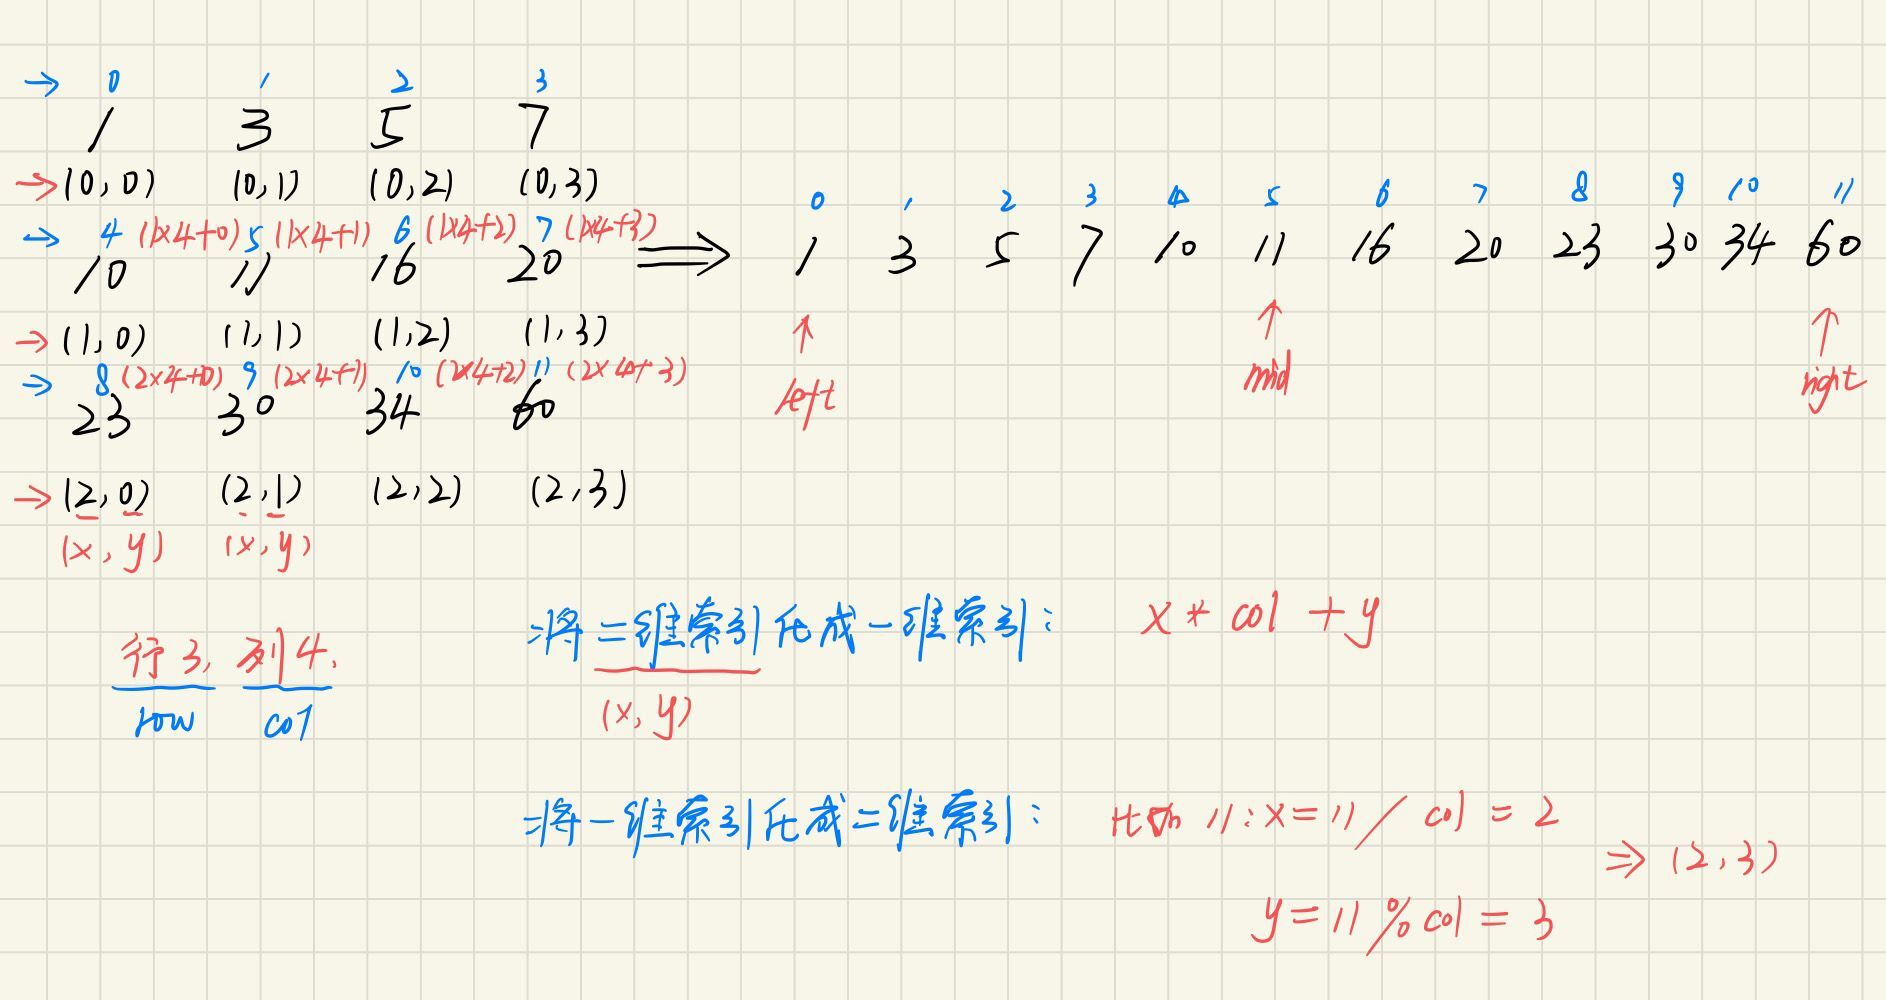 → 0 1 2 3
1 3 5 7
→ (0,0) (0,1) (0,2) (0,3)
→ 4 (1×4+0) 5 (1×4+1) 6 (1×4+2) 7 (1×4+3)
10 11 16 20
→ (1,0) (1,1) (1,2) (1,3)
→ 8 (2×4+0) 9 (2×4+1) 10 (2×4+2) 11 (2×4+3)
23 30 34 60
→ (2,0) (2,1) (2,2) (2,3)
(x,y) (x,y)
⇒
0 1 2 3 4 5 6 7 8 9 10 11
1 3 5 7 10 11 16 20 23 30 34 60
↑ ↑ ↑
left mid right
行3, 列4.
row col
将二维索引化成一维索引: x * col + y
(x, y)
将一维索引化成二维索引: 比如 11: x = 11 / col = 2
⇒ (2,3)
y = 11 % col = 3